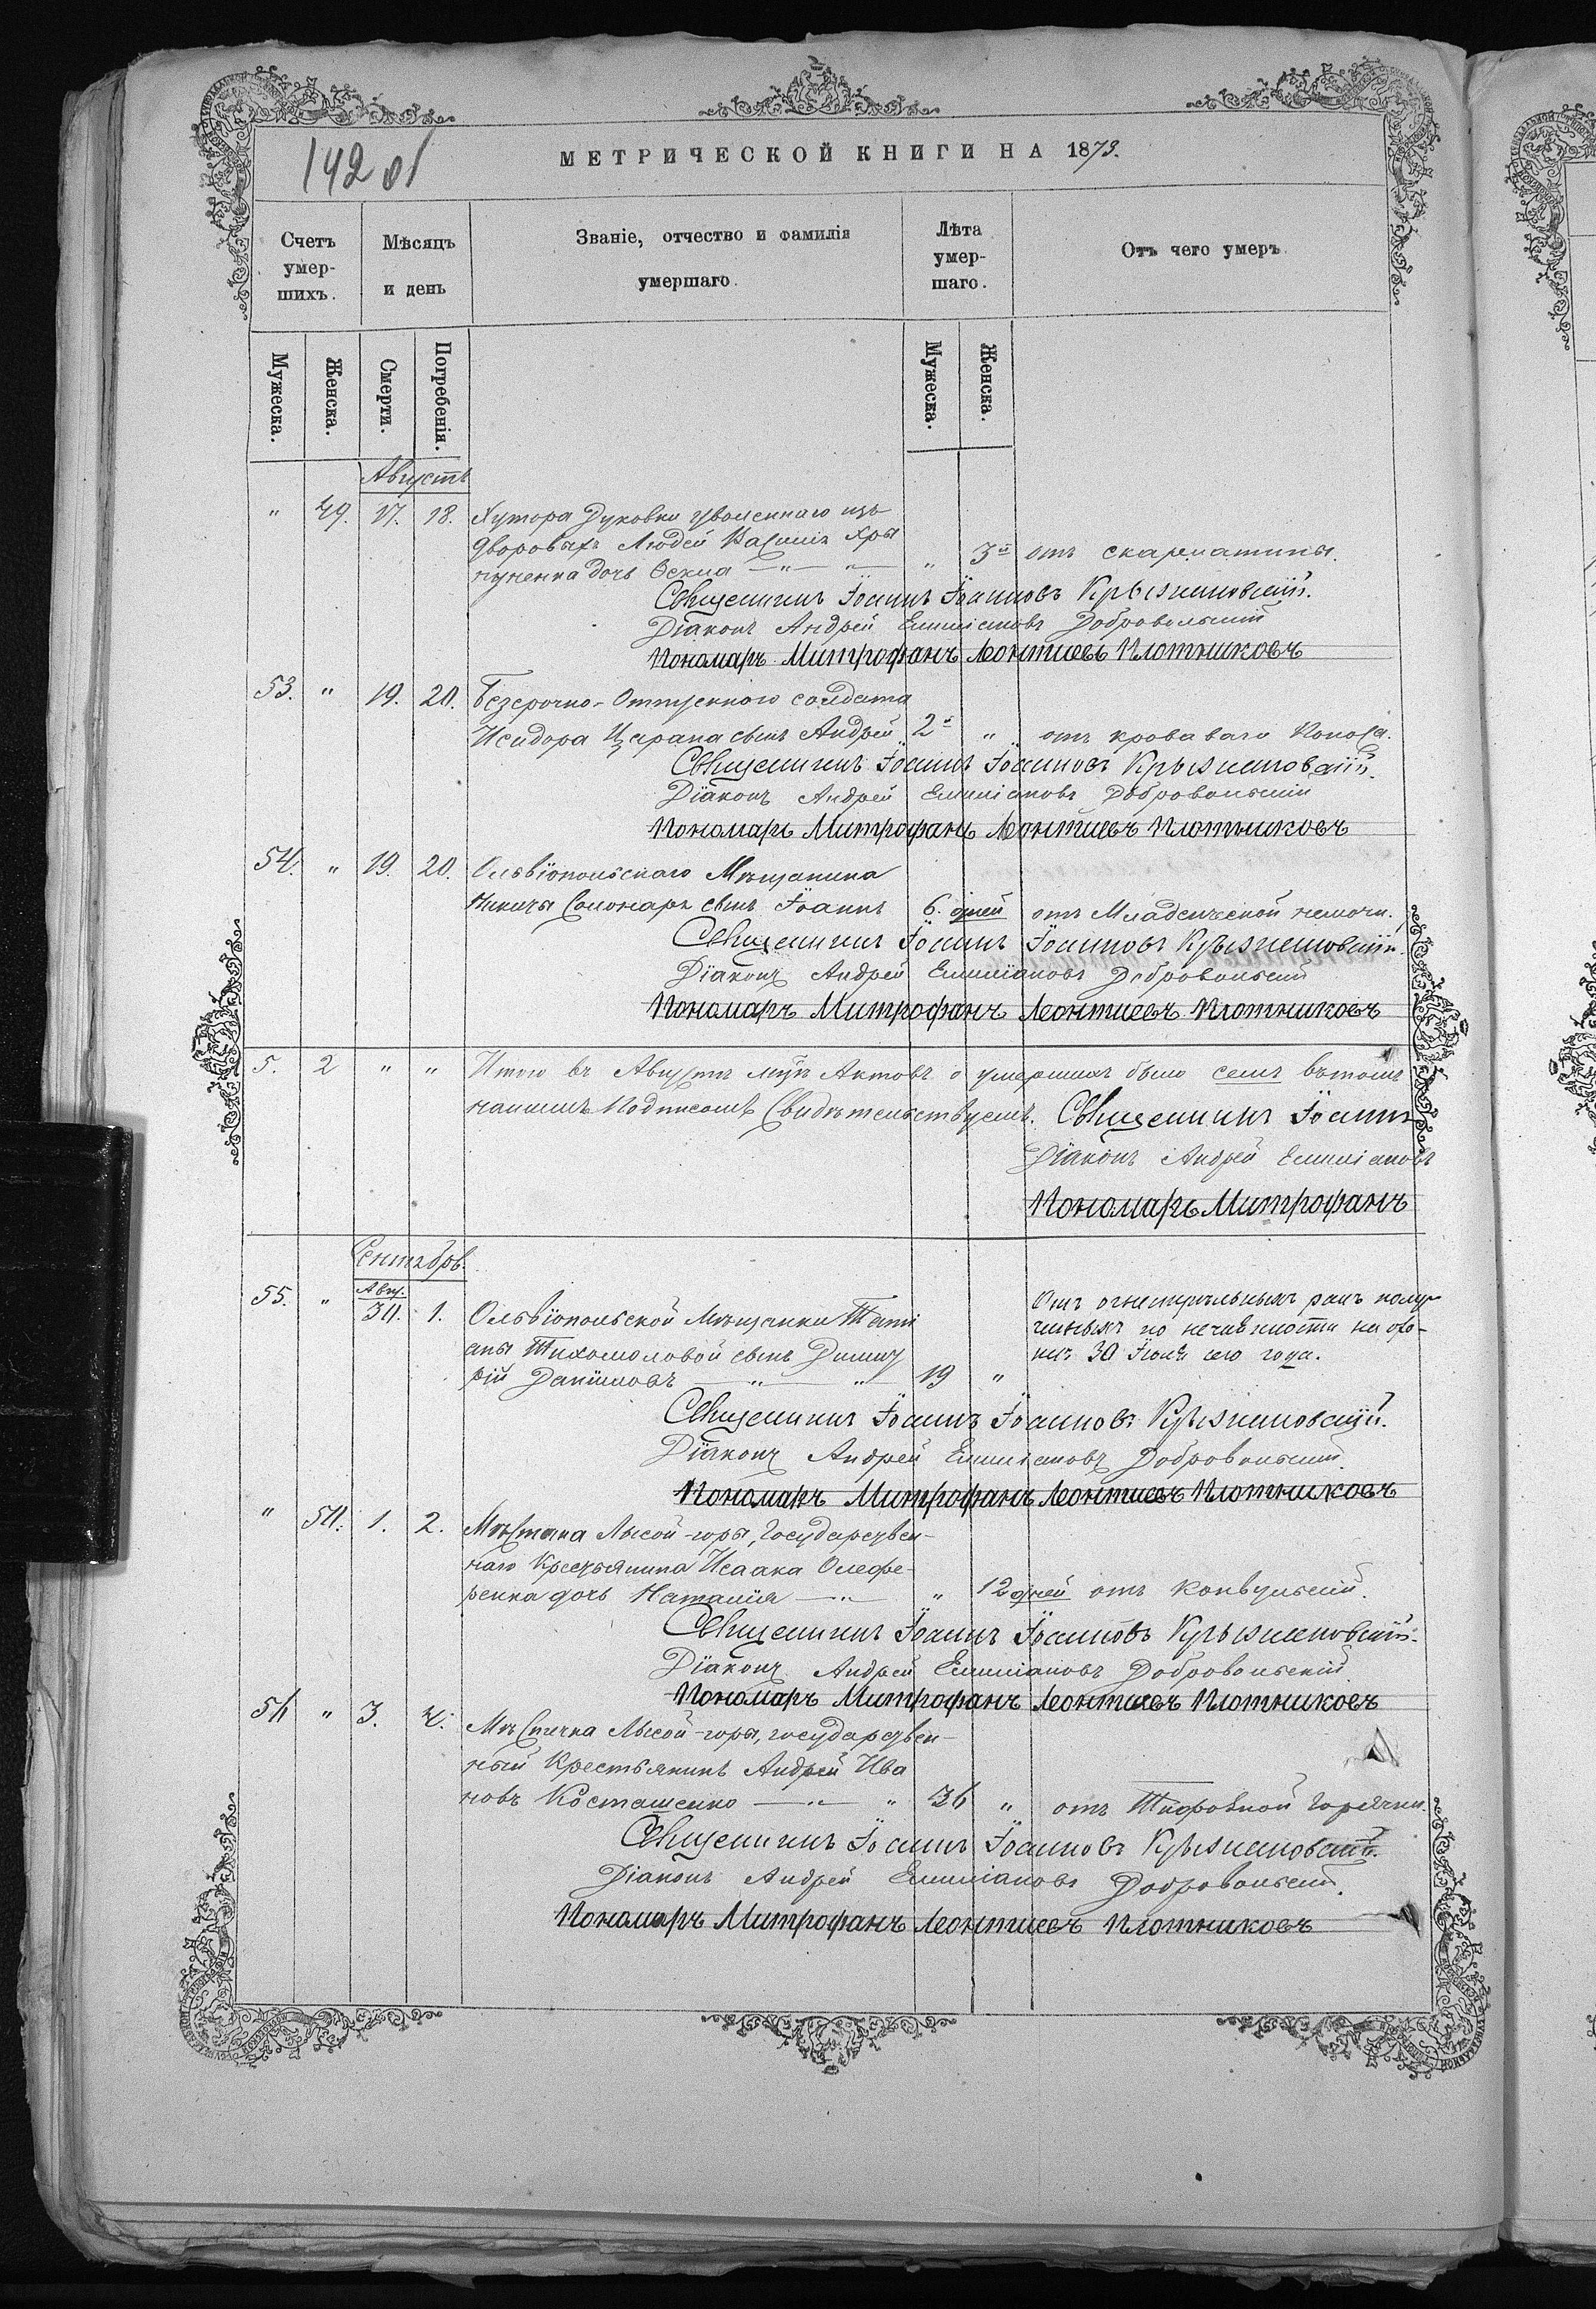 142 об
МЕТРИЧЕСКОЙ КНИГИ НА 1873.
Счетъ умер-шихъ.
Мѣсяцъ и день
Званіе, отчество и фамилія умершаго.
Лѣта умер-шаго.
Отъ чего умеръ
Мужеска.
Женска.
Смерти.
Погребенія.
Мужеска.
Женска.
Августъ
" 49. 17. 18. Хутора Дуковки уволеннаго изъ
дворовыхъ Людей
дочь " 3 отъ скарлатины.
Священникъ Іоаннъ Іоанновъ Крыжановскій.
Діаконъ Андрей Емиліановъ Добровольскій
Пономарь Митрофанъ Леонтіевъ Плотниковъ
53. " 19. 20. Безсрочно-Отпускного солдата
Исидора Царана сынъ Андрей 2 " отъ кроваваго Поноса.
Священникъ Іоаннъ Іоанновъ Крыжановскій.
Діаконъ Андрей Емиліановъ Добровольскій
Пономарь Митрофанъ Леонтіевъ Плотниковъ
54. " 19. 20. Ольвіопольскаго Мѣщанина
Никиты Солонарь сынъ Іоаннъ 6. дней отъ Младенческой немочи.
Священникъ Іоаннъ Іоанновъ Крыжановскій.
Діаконъ Андрей Емиліановъ Добровольскій
Пономарь Митрофанъ Леонтіевъ Плотниковъ
5. 2 " " Итого въ Августѣ мцѣ Актовъ о умершихъ было семь въ томъ
нашимъ Подписомъ Свидѣтельствуемъ. Священникъ Іоаннъ
Діаконъ Андрей Емиліановъ
Пономарь Митрофанъ
Сентябрь.
Авг.
55. " 30. 1. Ольвіопольской Мѣщанки Тати
аны Тихомоловой сынъ Димит
рій Даниловъ 19 "
Отъ огнестрѣльныхъ ранъ полу-
ченныхъ по нечаянности на охо-
тѣ 30 Іюля сего года.
Священникъ Іоаннъ Іоанновъ Крыжановскій.
Діаконъ Андрей Емиліановъ Добровольскій.
Пономарь Митрофанъ Леонтіевъ Плотниковъ
" 50. 1. 2. Мѣстечка Лысой-горы, Государствен-
наго Крестьянина Исаака Олефе-
ренка дочь Наталія " 12 дней отъ Конвульсій.
Священникъ Іоаннъ Іоанновъ Крыжановскій.
Діаконъ Андрей Емиліановъ Добровольскій
Пономарь Митрофанъ Леонтіевъ Плотниковъ
56 " 3. 4. Мѣстечка Лысой-горы, государствен-
ный Крестьянинъ Андрей Ива
новъ Косташенко " 36 " отъ Тифозной Горячки.
Священникъ Іоаннъ Іоанновъ Крыжановскій.
Діаконъ Андрей Емиліановъ Добровольскій.
Пономарь Митрофанъ Леонтіевъ Плотниковъ